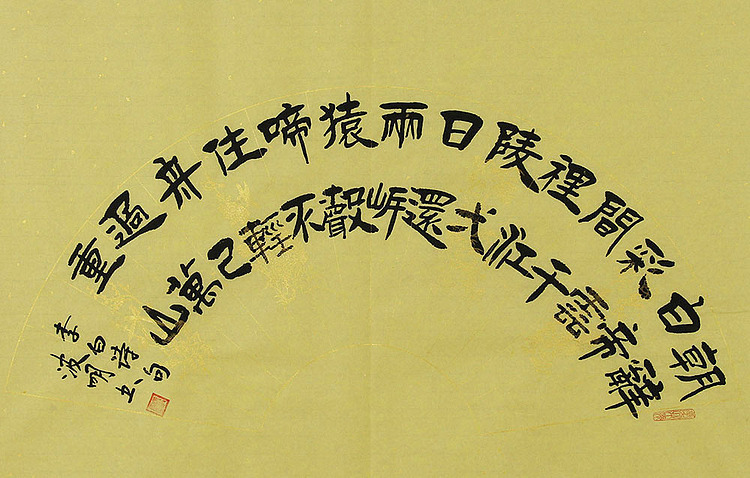 朝辭
白帝
彩雲
間千
裡江
陵弌
日還
兩岸
猿聲
啼不
住輕
舟己
過萬
重山
李白诗句
波明书